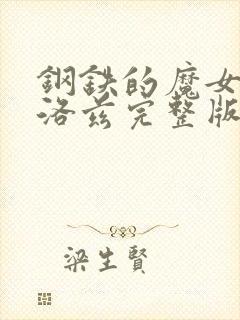 鋼鉄的魔女
洛茲完整版
梁生賢